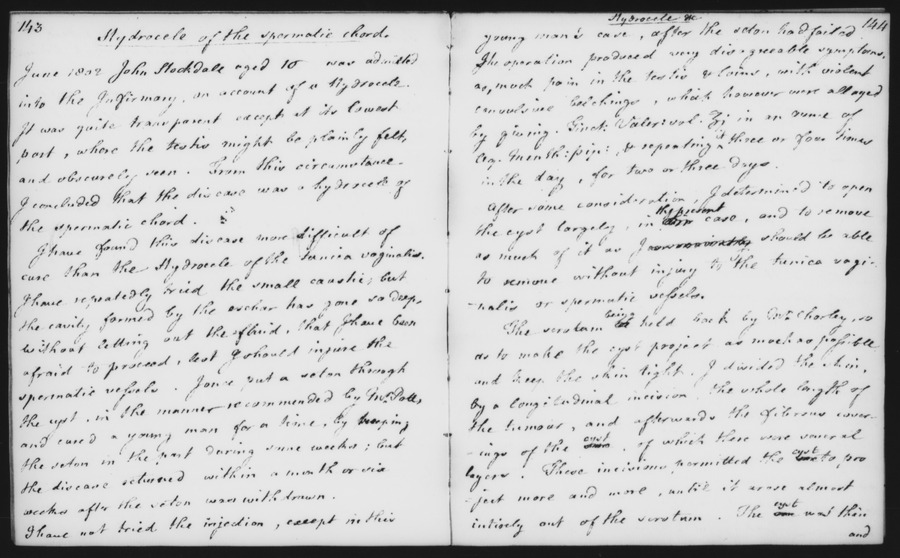 143
Hydrocele of the spermatic chord.
June 1802 John Stockdale aged 10 was admitted
into the Infirmary, on account of a Hydrocele.
It was quite transparent except at its lowest
part, where the testis might be plainly felt,
and obscurely seen. From this circumstance
I concluded that the disease was a hydrocele of
the spermatic chord.
I have found this disease more difficult of
cure than the Hydrocele of the tunica vaginalis.
I have repeatedly tried the small caustic; but
the cavity formed by the eschar has gone so deep,
without letting out the fluid, that I have been
afraid to proceed, lest I should injure the
spermatic vessels. I once put a seton through
the cyst, in the manner recommended by Mr. Pott,
and cured a young man for a time, by keeping
the seton in the part during some weeks; but
the disease returned within a month or six
weeks after the seton was withdrawn.
I have not tried the injection, except in this
Hydrocele &c
144
young man's case, after the seton had failed
The operation produced very disagreeable symptoms,
as, much pain in the testis & loins, with violent
convulsive belchings, which however were allayed
by giving Tinct: Valer: vol: ʒj in an ounce of
Aq. Menth: pip: & repeating it three or four times
in the day, for two or three days.
After some consideration, I determined to open
the cyst largely, in the present case, and to remove
as much of it as I should be able
to remove without injury to the tunica vagi-
-nalis or spermatic vessels.
The scrotum being held back by Mr. Chorley, so
as to make the cyst project as much as possible
and keep the skin tight, I divided the skin,
by a longitudinal incision the whole length of
the tumour, and afterwards the fibrous cover-
-ings of the cyst, of which there were several
layers. These incisions permitted the cyst to pro
ject more and more, until it arose almost
intirely out of the scrotum. The cyst was thin
and